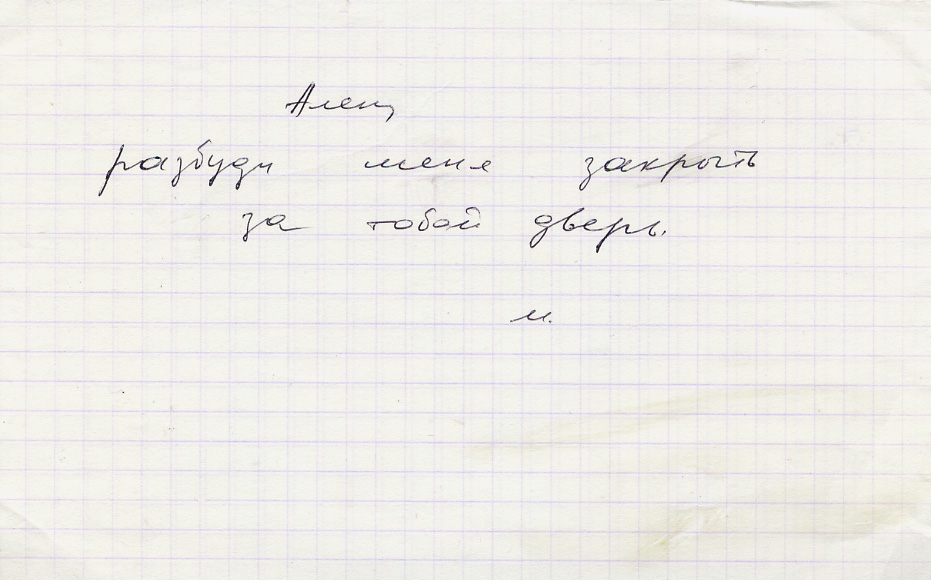 Ален,
разбуди меня закрыть
за тобой дверь.
м.